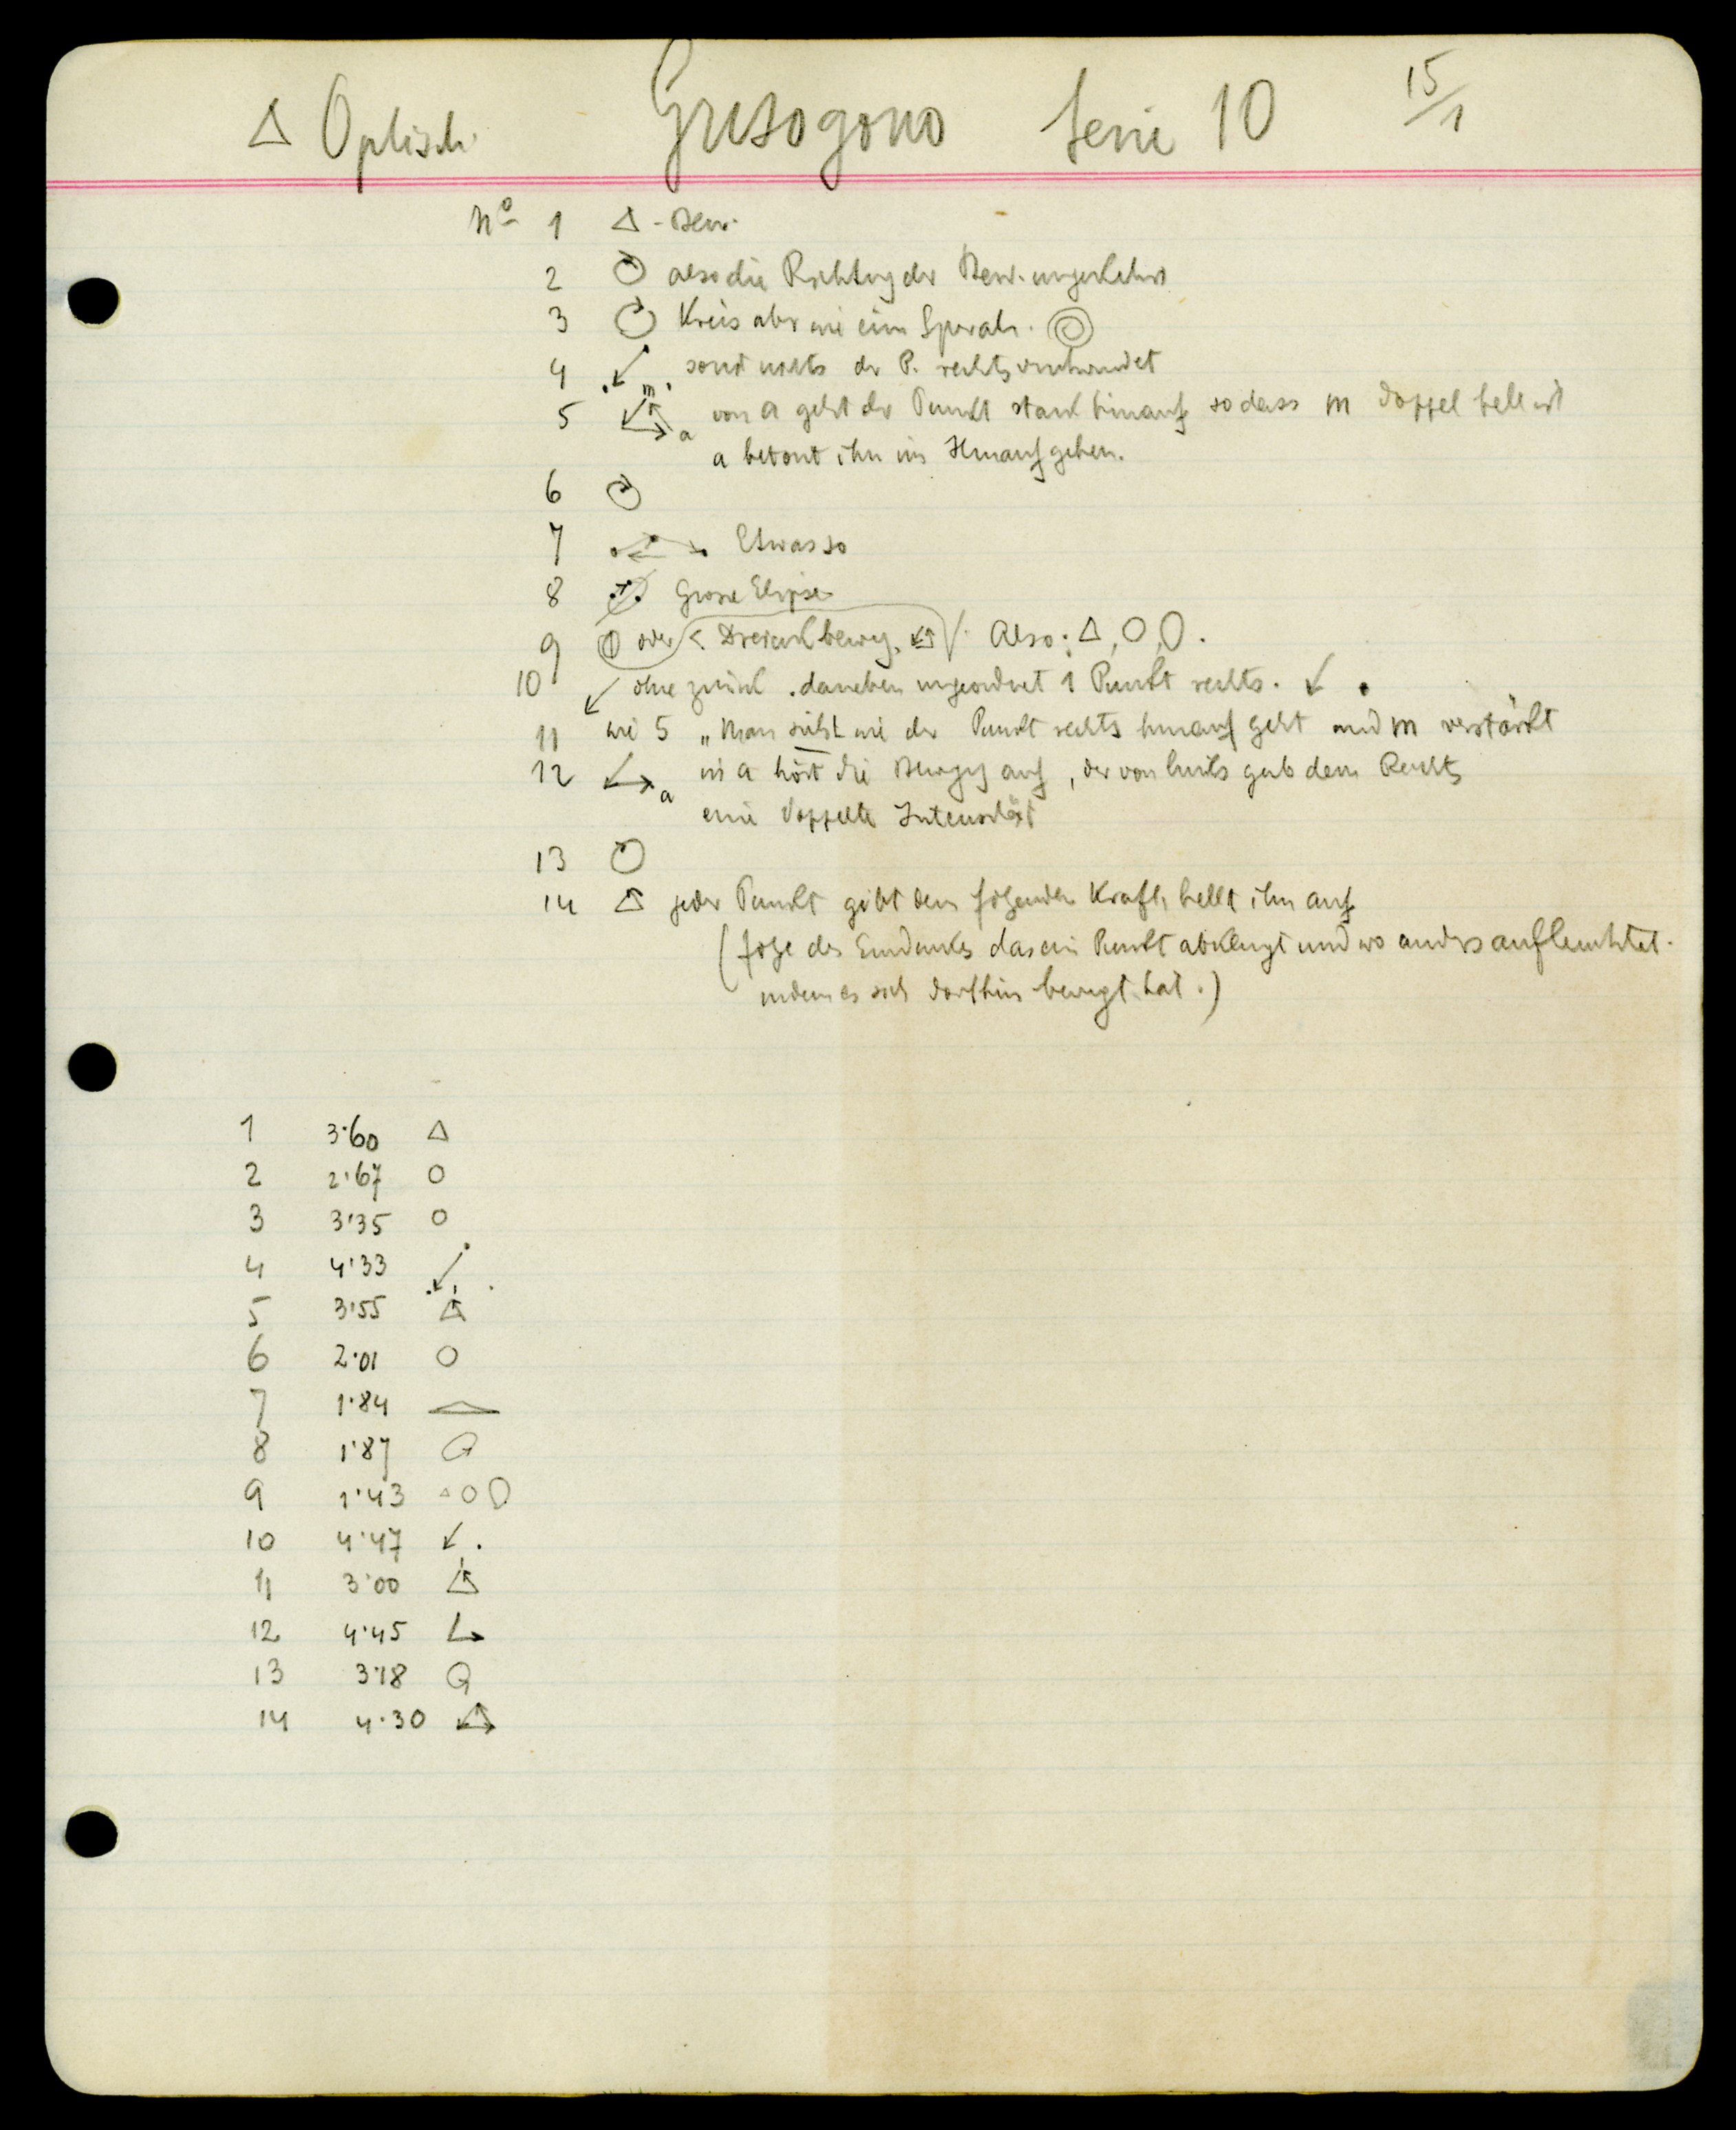 △ Optisch Grisogono Serie 10 15/1
No 1 △ - Bew.
2 also die Richtung der Bew. umgekehrt
3 Kreis aber wie eine Spirale.
4 sonst nichts der P. rechts verschwindet
m
5 a von a geht der Punkt stark hinauf so dass m doppel hell ist
a betont ihn im Hinaufgehen.
6
7 Etwas so
8 Grosse Elipse
9 oder < Dreieckbeweg. Also: △, O, O.
10 ↙ ohne zurück . daneben ungeordnet 1 Punkt rechts. ↙ .
11 wie 5 „Man sieht wie der Punkt rechts hinauf geht und m verstärkt
12 a in a hört die Bewegg auf, der von links gab dem Rechts
eine doppelte Intensität
13
14 △ jeder Punkt gibt dem folgenden Kraft, hellt ihn auf
(folge des Eindrucks das ein Punkt abklingt und wo anders aufleuchtet.
indem es sich dorthin bewegt hat.)
1 3·60 △
2 2·67 O
3 3·35 O
4 4·33 ↙
5 3·55 △
6 2·01 O
7 1·84
8 1·87
9 1·43 △ O O
10 4·47 ↙ .
11 3·00 △
12 4·45
13 3·18
14 4·30 △